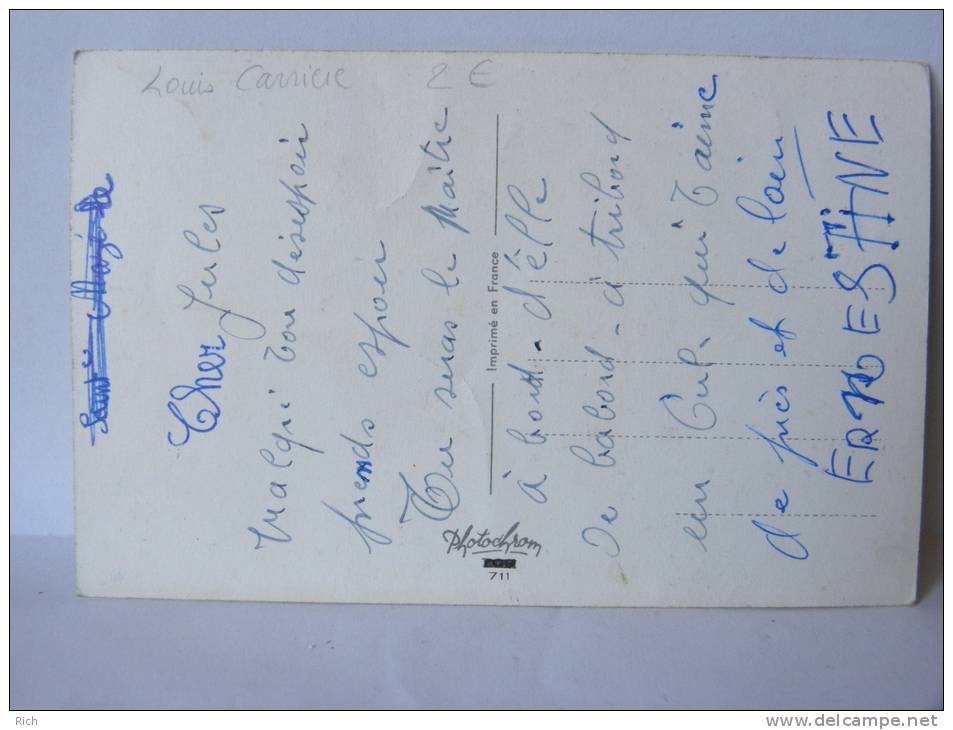 Louis Carrière 2 €
Sainte Maxime
Cher Jules
Malgré ton désespoir
prends espoir
Tu seras le Maître
à bord. d'êlle
De babord - à tribord
un Cul. qui t'aime
de près et de loin
ERNESTINE
Imprimé en France
Photochrom
711
Rich
www.delcampe.net